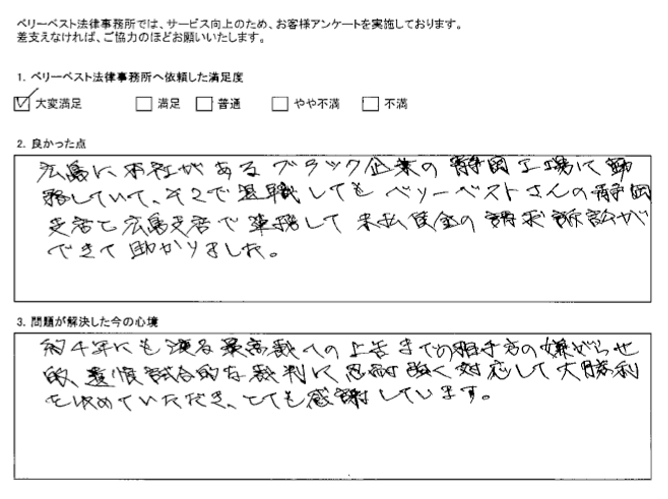 ベリーベスト法律事務所では、サービス向上のため、お客様アンケートを実施しております。
差支えなければ、ご協力のほどお願いいたします。
1. ベリーベスト法律事務所へ依頼した満足度
大変満足 満足 普通 やや不満 不満
2. 良かった点
広島に本社があるブラック企業の静岡工場に勤
務していて、そこで退職してもベリーベストさんの静岡
支店と広島支店で連携して未払賃金の請求訴訟が
できて助かりました。
3. 問題が解決した今の心境
約4年にも渡る最高裁への上告までの相手方の嫌がらせ
的、遺恨試合的な裁判に忍耐強く対応して大勝利
を収めていただき、とても感謝しています。